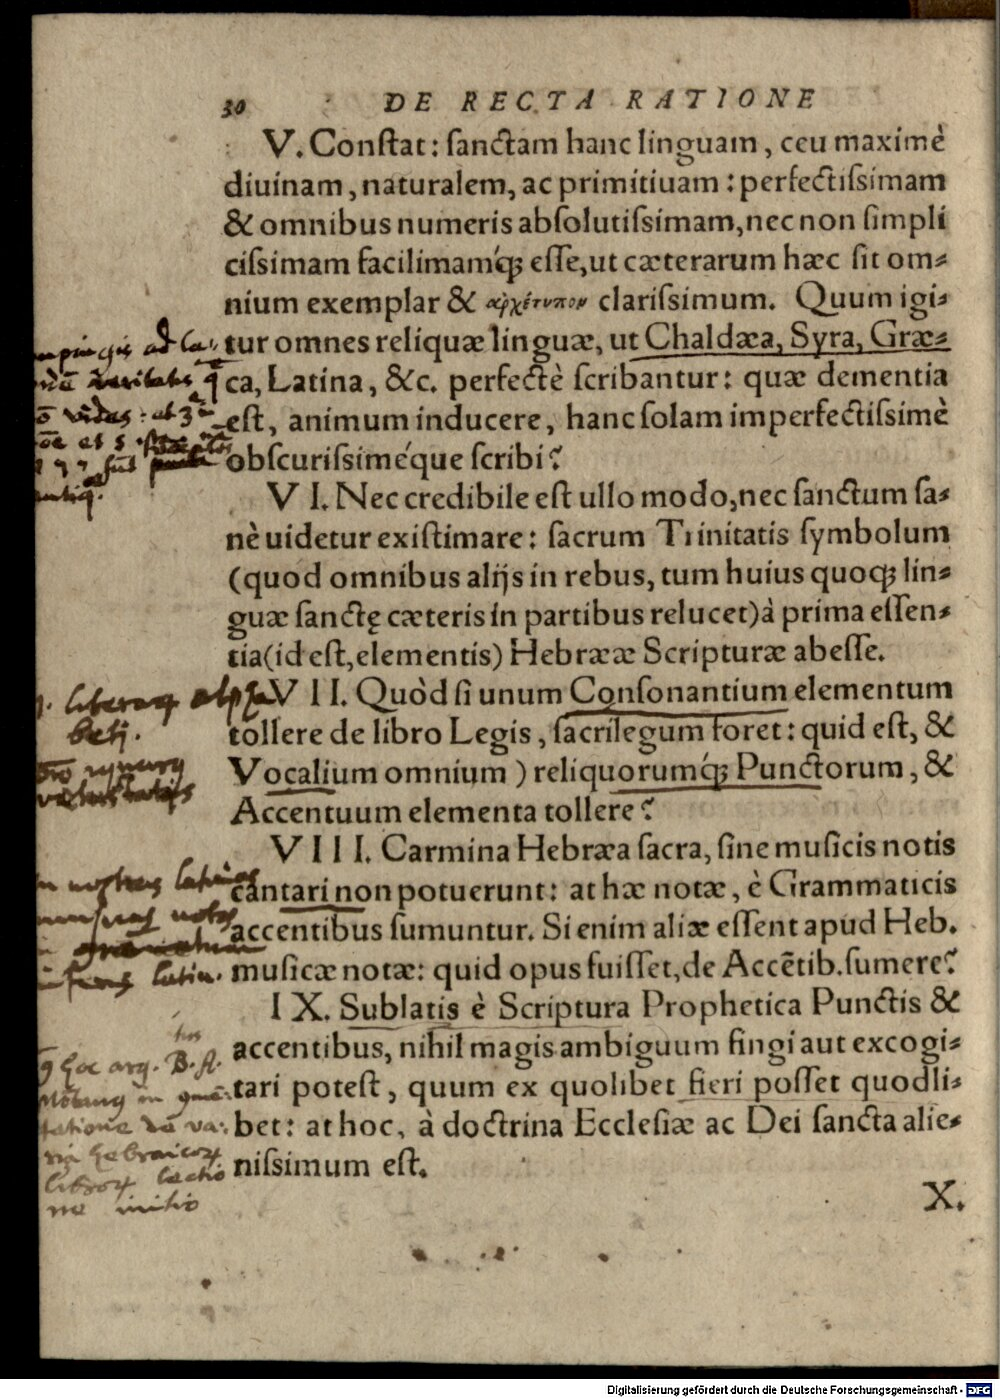 30 DE RECTA RATIONE
V. Conſtat: ſanctam hanc linguam, ceu maximè
diuinam, naturalem, ac primitiuam: perfectiſsimam
& omnibus numeris abſolutiſsimam, nec non ſimpli
ciſsimam facilimamq́; eſſe, ut cæterarum hæc ſit om-
nium exemplar & αρχέτυπον clariſsimum. Quum igi-
tur omnes reliquæ linguæ, ut Chaldæa, Syra, Græ-
ca, Latina, &c. perfectè ſcribantur: quæ dementia
eſt, animum inducere, hanc ſolam imperfectiſsimè
obſcuriſsiméque ſcribi?
VI. Nec credibile eſt ullo modo, nec ſanctum ſa-
nè uidetur exiſtimare: ſacrum Trinitatis ſymbolum
(quod omnibus alijs in rebus, tum huius quoq; lin-
guæ ſanctę cæteris in partibus relucet) à prima eſſen-
tia (id eſt, elementis) Hebrææ Scripturæ abeſſe.
VII. Quòd ſi unum Conſonantium elementum
tollere de libro Legis, ſacrilegum foret: quid eſt, &
Vocalium omnium) reliquorumq́; Punctorum, &
Accentuum elementa tollere?
VIII. Carmina Hebræa ſacra, ſine muſicis notis
cantari non potuerunt: at hæ notæ, è Grammaticis
accentibus ſumuntur. Si enim aliæ eſſent apud Heb.
muſicæ notæ: quid opus fuiſſet, de Accētib. ſumere?
IX. Sublatis è Scriptura Prophetica Punctis &
accentibus, nihil magis ambiguum fingi aut excogi-
tari poteſt, quum ex quolibet fieri poſſet quodli-
bet: at hoc, à doctrina Eccleſiæ ac Dei ſancta alie-
niſsimum eſt.
X.
ad la-
veritatis
vides: et 3
et 5
antiq.
literarq alpha
betj.
vetustatis
in nostris latinis
notas
latin.
hoc arg. B. A.
in
tatione de va-
ria hebraicoꝝ
libroꝝ lectio
ne initio
Digitalisierung gefördert durch die Deutsche Forschungsgemeinschaft - DFG